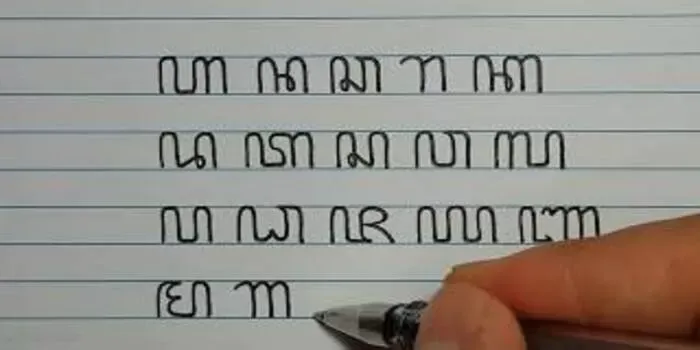 ꦲ ꦤ ꦕ ꦫ ꦏ
ꦢ ꦠ ꦱ ꦮ ꦭ
ꦥ ꦝ ꦗ ꦪ ꦚ
ꦩ ꦒ